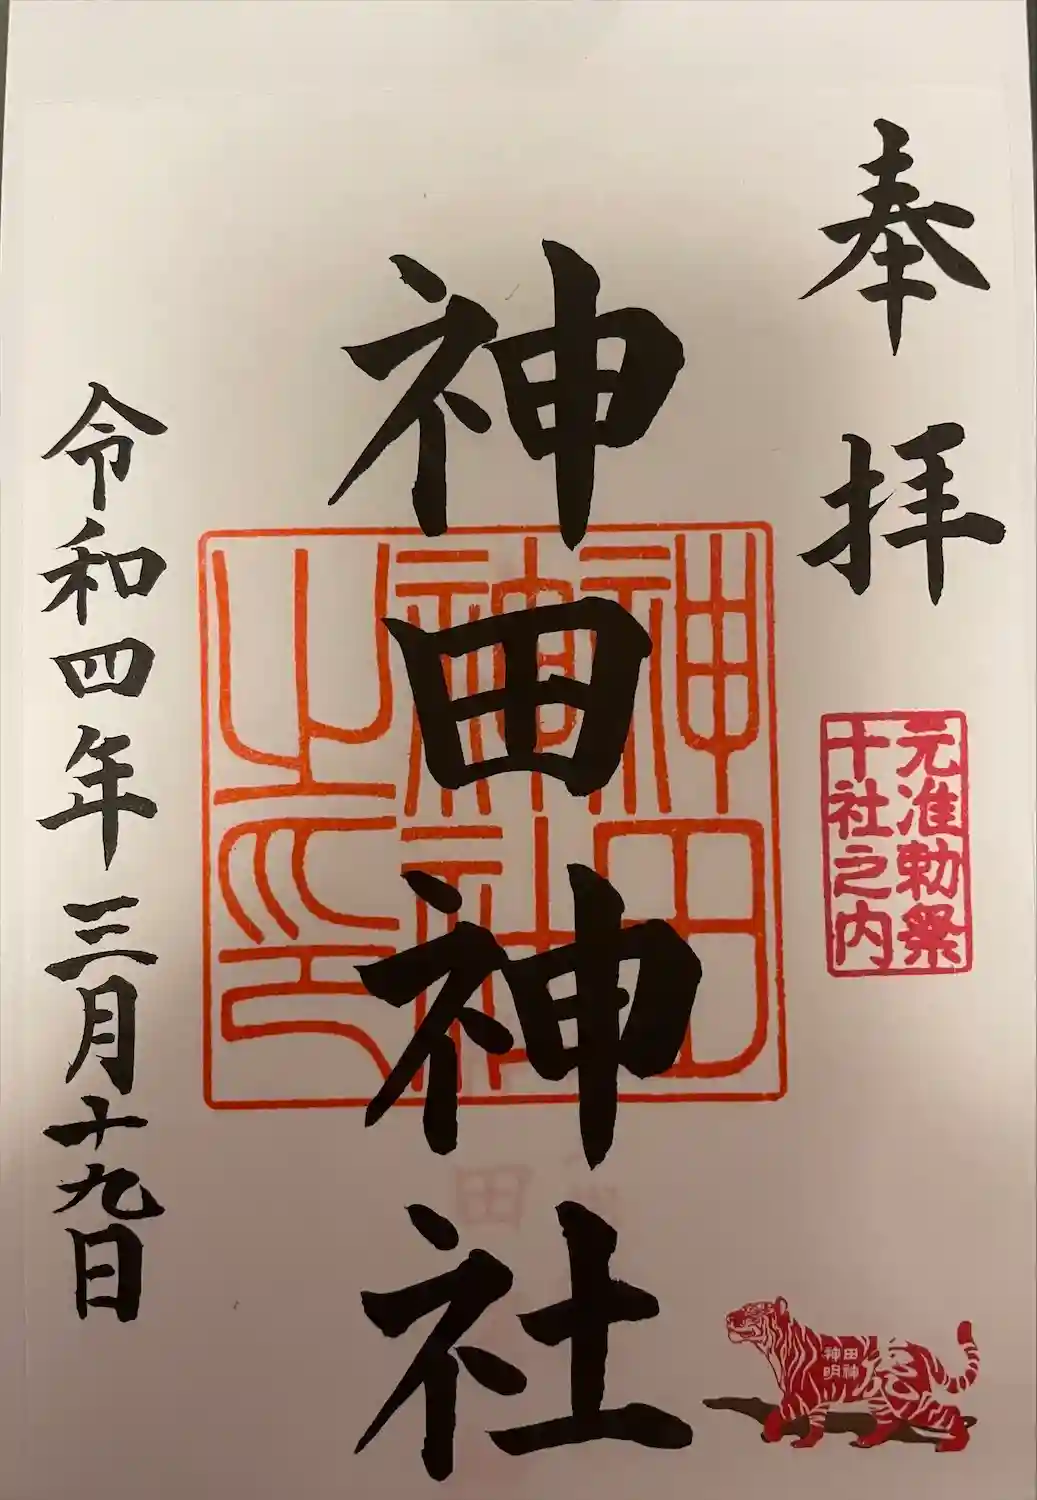 奉拝
元准勅祭
十社之内
神田神社
神田神社之印
令和四年三月十九日
田神
神明